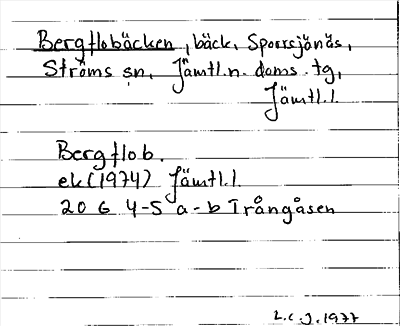 Bergflobäcken, bäck, Sporrsjönäs,
Ströms sn, Jämtl.n. doms.tg,
Jämtl.l.
Bergflob.
ek(1974) Jämtl.l.
20 G 4-5 a-b Trångåsen
L.C.J. 1977